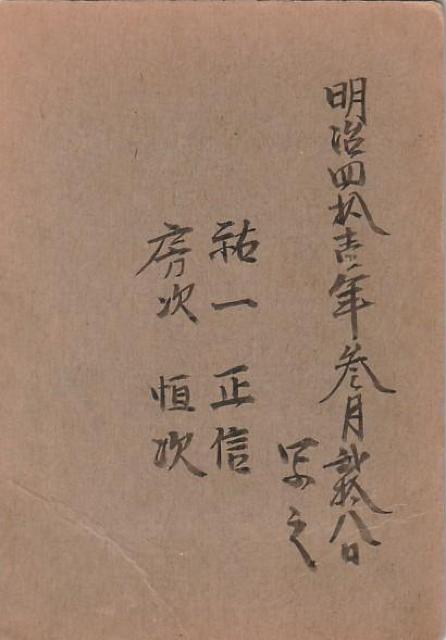 明治四拾壱年叁月弐拾八日
写之
祐一 正信
房次 恒次